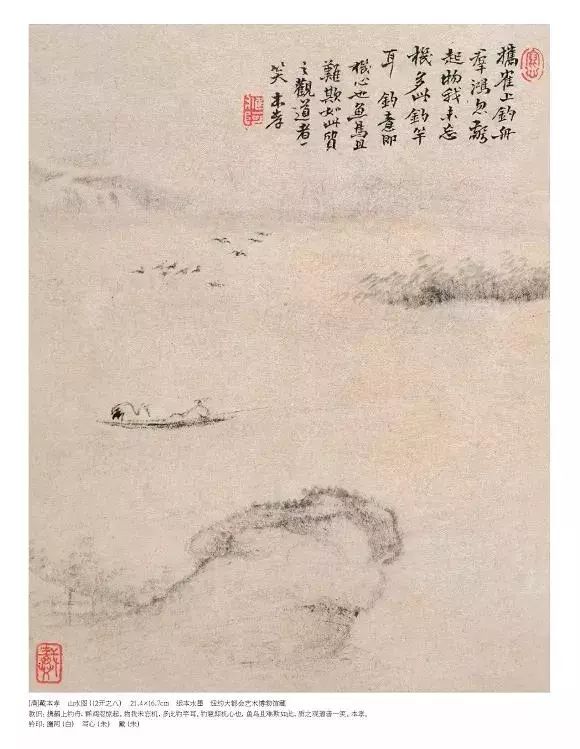 攜寉上釣舟
羣鴻忽驚
起物我未忘
機多此釣竿
耳 釣意即
機心也魚鳥且
難欺如此質
之觀道者一
笑 本孝
[清]戴本孝 山水图 (12开之八) 21.4×16.7cm 纸本水墨 纽约大都会艺术博物馆藏
款识：携鹤上钓舟，群鸿忽惊起。物我未忘机，多此钓竿耳。钓意即机心也，鱼鸟且难欺如此，质之观道者一笑。本孝。
钤印：鹰阿(白) 写心(朱) 戴(朱)